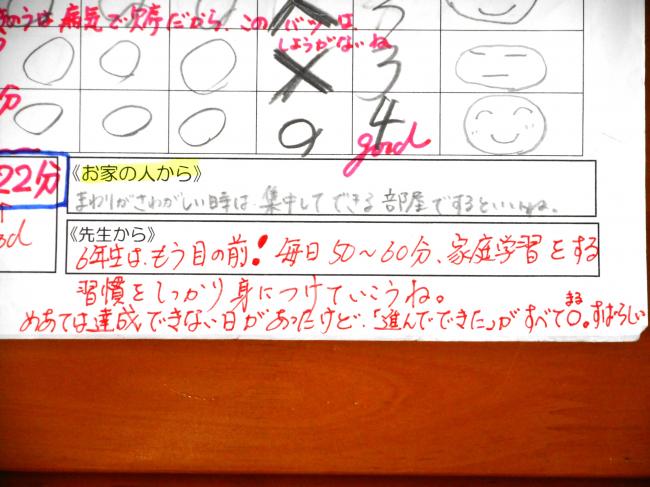 きのうは病気で欠席だから、このバツは、
しょうがないね
3
3
分
4
good
22分
《お家の人から》
まわりがさわがしい時は、集中してできる部屋でするといいね。
《先生から》
6年生は、もう目の前!毎日50~60分、家庭学習をする
習慣をしっかり身につけていこうね。
めあては達成できない日があったけど、「進んでできた」がすべて○。すばらしい
まる